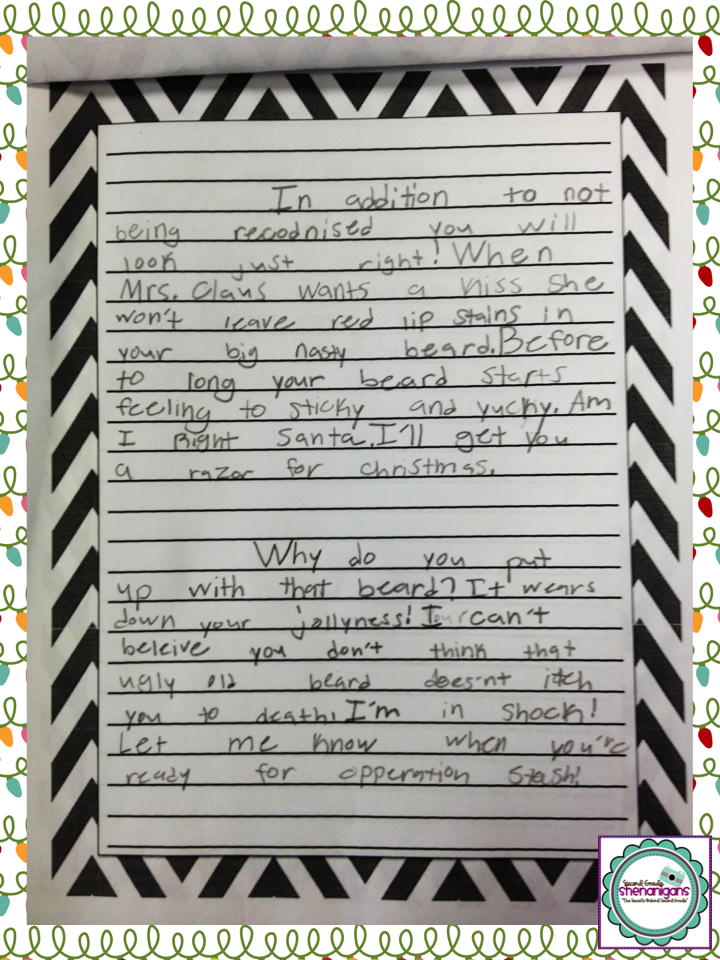 In addition to not
being recodnised you will
look just right! When
Mrs. Claus wants a kiss she
won't leave red lip stains in
your big nasty beard. Before
to long your beard starts
feeling to sticky and yucky. Am
I Right Santa. I'll get you
a razor for christmas.
Why do you put
up with that beard? It wears
down your jollyness! I can't
beleive you don't think that
ugly old beard does'nt itch
you to death. I'm in shock!
Let me know when you're
ready for opperation stash!
Second Grade
shenanigans